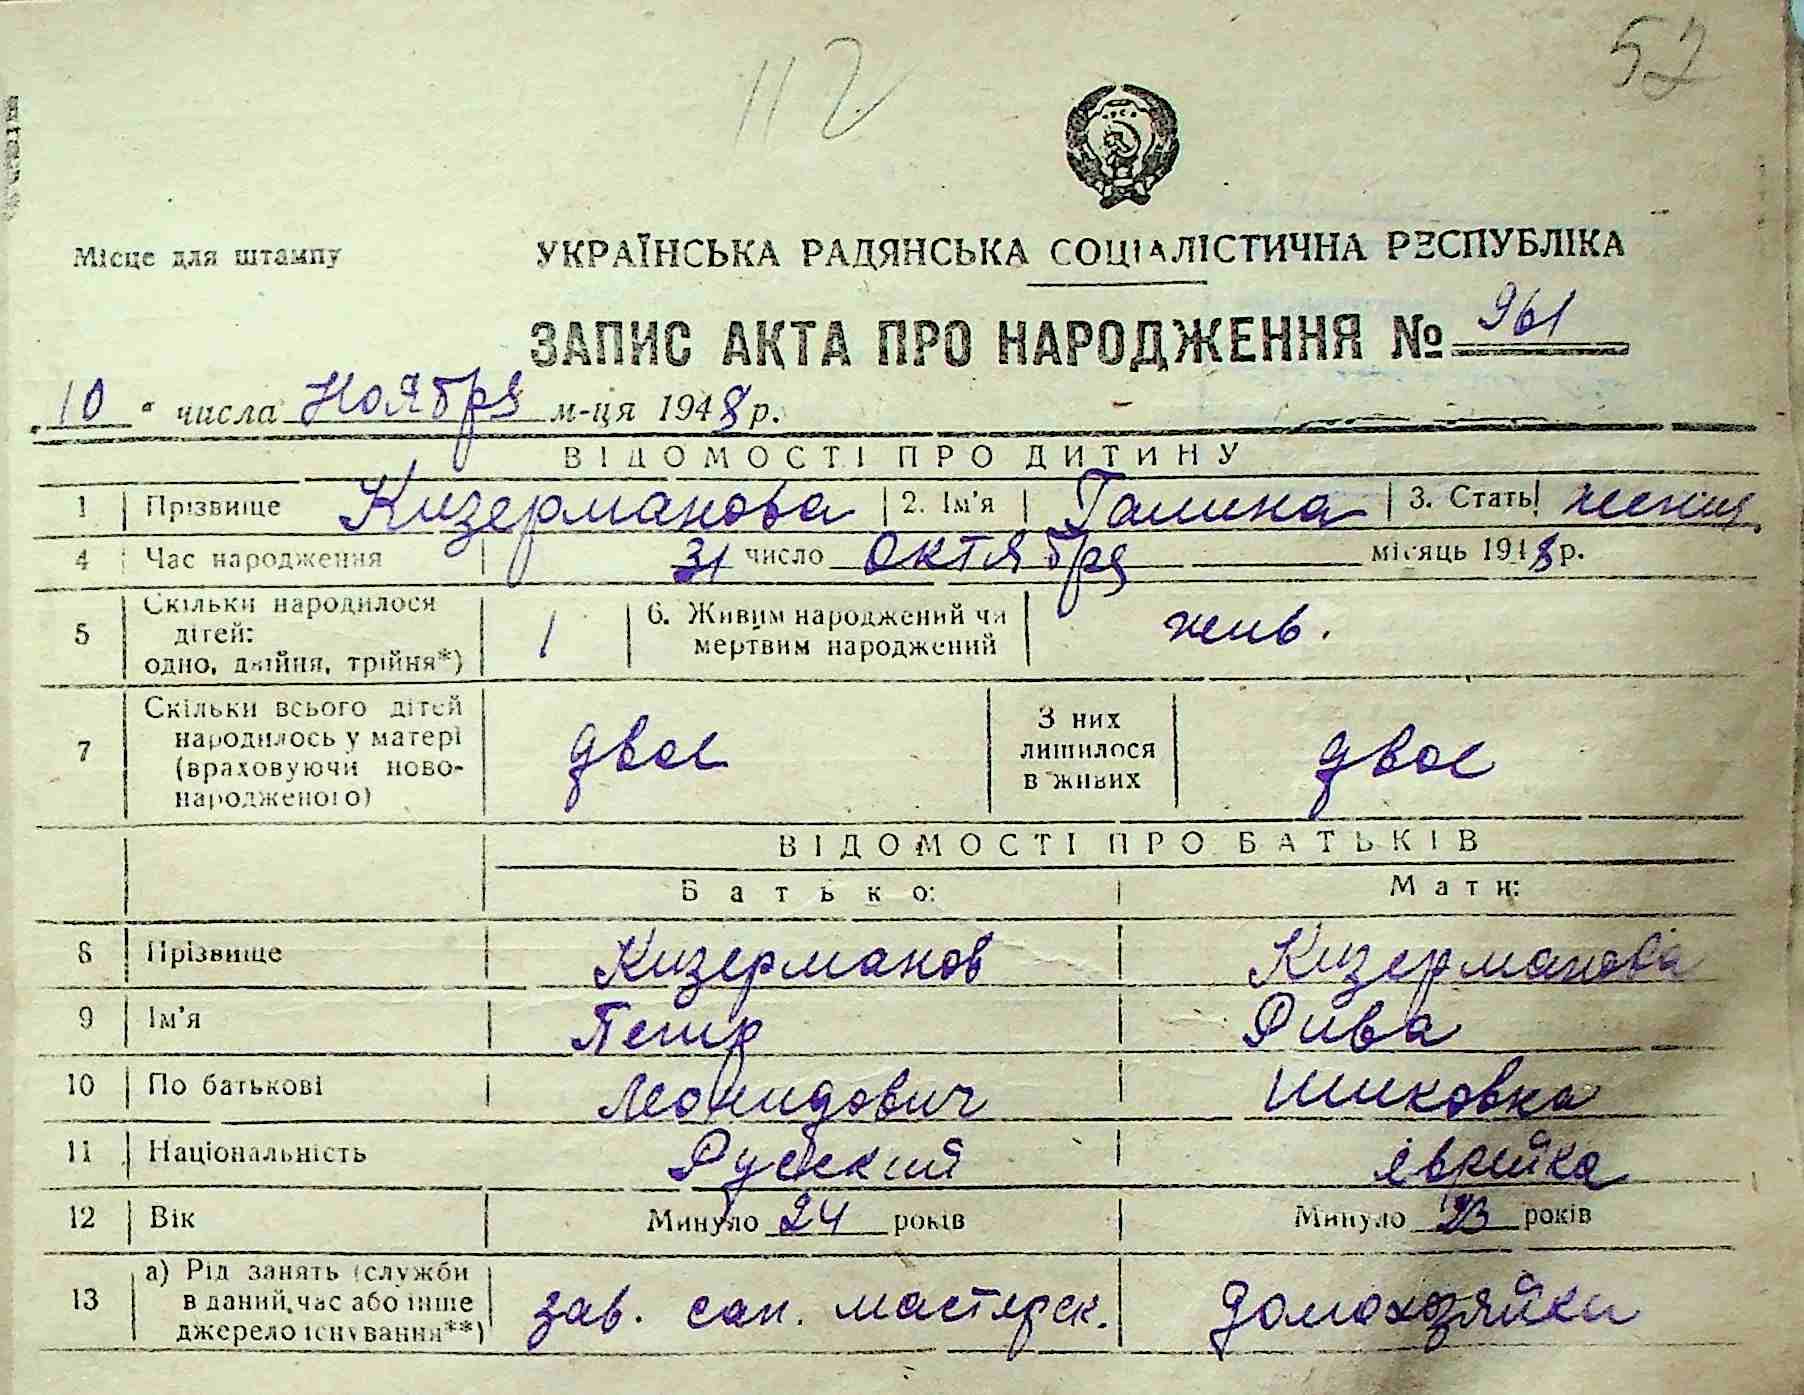 112
52
Місце для штампу
УКРАЇНСЬКА РАДЯНСЬКА СОЦІАЛІСТИЧНА РЕСПУБЛІКА
ЗАПИС АКТА ПРО НАРОДЖЕННЯ № 961
„10 “ числа Ноября м-ця 1948 р.
ВІДОМОСТІ ПРО ДИТИНУ
1 Прізвище Кизерманова 2. Ім'я Галина 3. Стать женщ.
4 Час народження 31 число октября місяць 1948 р.
5 Скільки народилося дітей: одно, двійня, трійня*) 1 6. Живим народжений чи мертвим народжений жив.
7 Скільки всього дітей народилось у матері (враховуючи ново-народженого) двое З них лишилося в живих двое
ВІДОМОСТІ ПРО БАТЬКІВ
Батько: Мати:
8 Прізвище Кизерманов Кизерманова
9 Ім'я Петр Рива
10 По батькові Леонидович Ициковна
11 Національність Русский еврейка
12 Вік Минуло 24 років Минуло 23 років
13 а) Рід занять (служби в даний час або інше джерело існування**) зав. сап. мастерск. домохозяйки